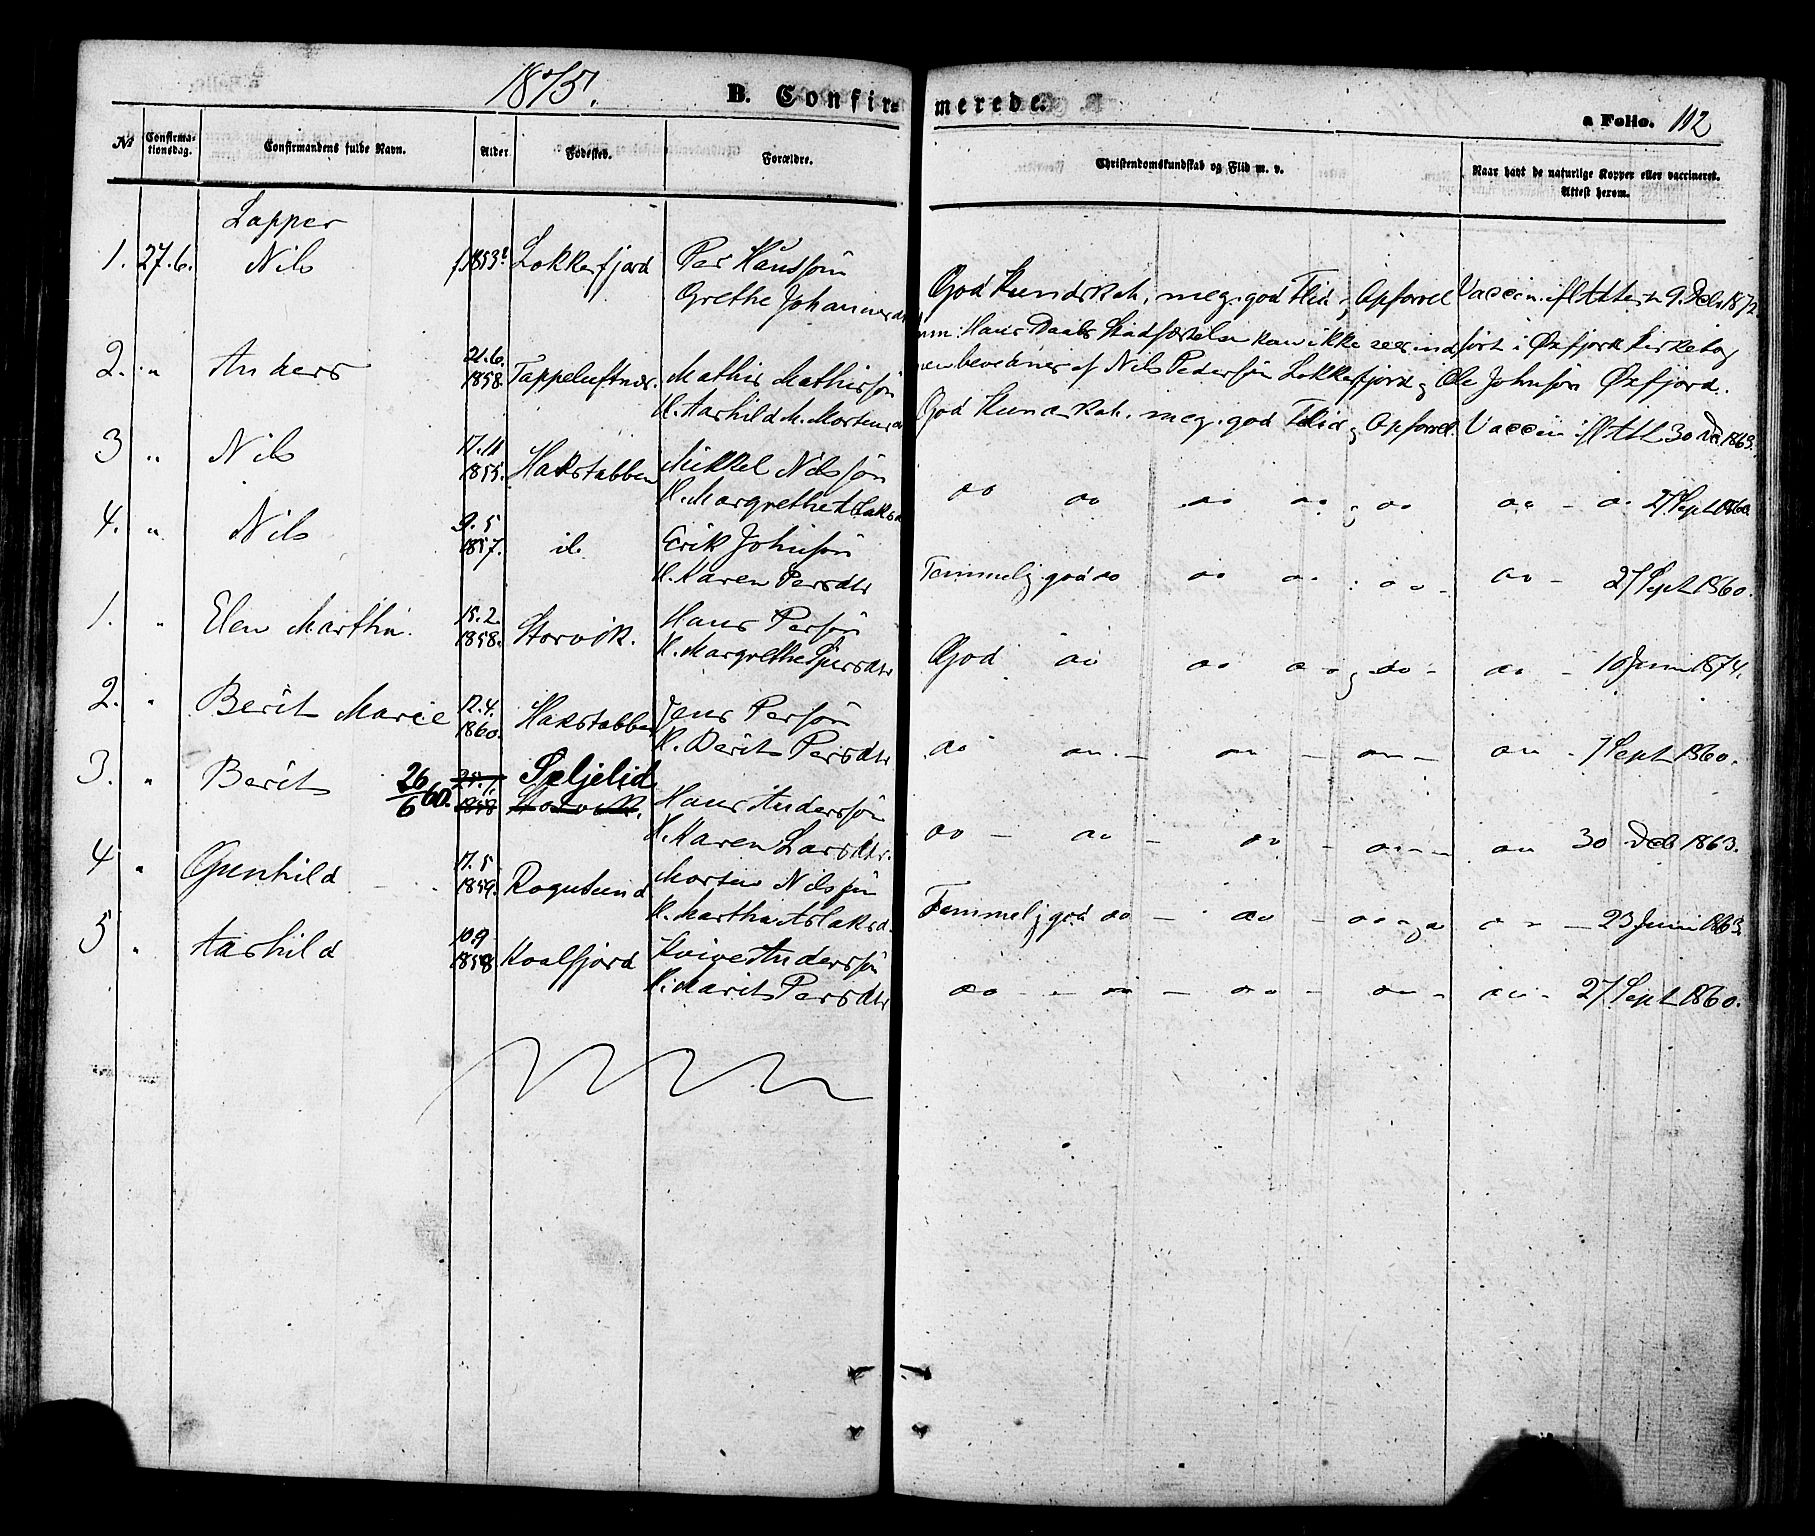 1875.
B. Confirmerede.
a Folio. 112
No Confirmationsdag. Confirmandens fulde Navn. Alder Fødested. Forældre. Christendomskundskab og Flid m. v. Naar havt de naturlige Kopper eller vaccineret. Attest herom.
Lapper
1. 27.6. Nils f. 1853 Lokkerfjord Per Hansøn
Grethe Johannesd
God Kundskab, meg. god Flid og Opførsel Vaccin. ifl Attest 9. Deb 1872
Hans Daabs Stadfæstelse kan ikke sees indført i Øxfjord Kirkebog
bevidner af Nils Pedersøn Lokkerfjord og Ole Johnsøn Øxfjord.
2. " Anders 21.6. 1858. Tappeluftnær. Mathis Mathissøn
H. Aashild M. Mortensd
God Kundskab. meg. god Flid og Opførsel. Vaccin ifl Att 30 Dec 1863.
3 " Nils 17.11 1855. Hakstabben Mikkel Nilssøn
H. Margrethe Aslaksd
do do do do do do do 27 Sept 1860.
4. " Nils 9.5 1857. id. Erik Johnsøn
H. Karen Persdtr
Temmelig god do do do do do 27 Sept 1860.
1. " Elen Marthin. 15.2. 1858. Storvik. Hans Persøn
H. Margrethe Persdtr
God do do do og do do 10 Juni 1874.
2. " Berit Marie 12.4. 1860. Hakstabben Jens Persøn
H. Berit Persdtr
do do do do do 7 Sept 1860.
3. " Berit 26/6 60. 1858 Seljelid
Storvik. Hans Anderssøn
H. Karen Larsdtr.
do do do do do 30 Deb 1863.
4 " Gunhild 17.5 1859. Rognsund Morten Nilssøn
H. Martha Aslaksd.
Temmelig god do do do do 23 Juni 1863
5 " Aashild 10.9 1858 Kvalfjord Anderssøn
H. Marit Persdtr
do do do do do 27 Sept 1860.